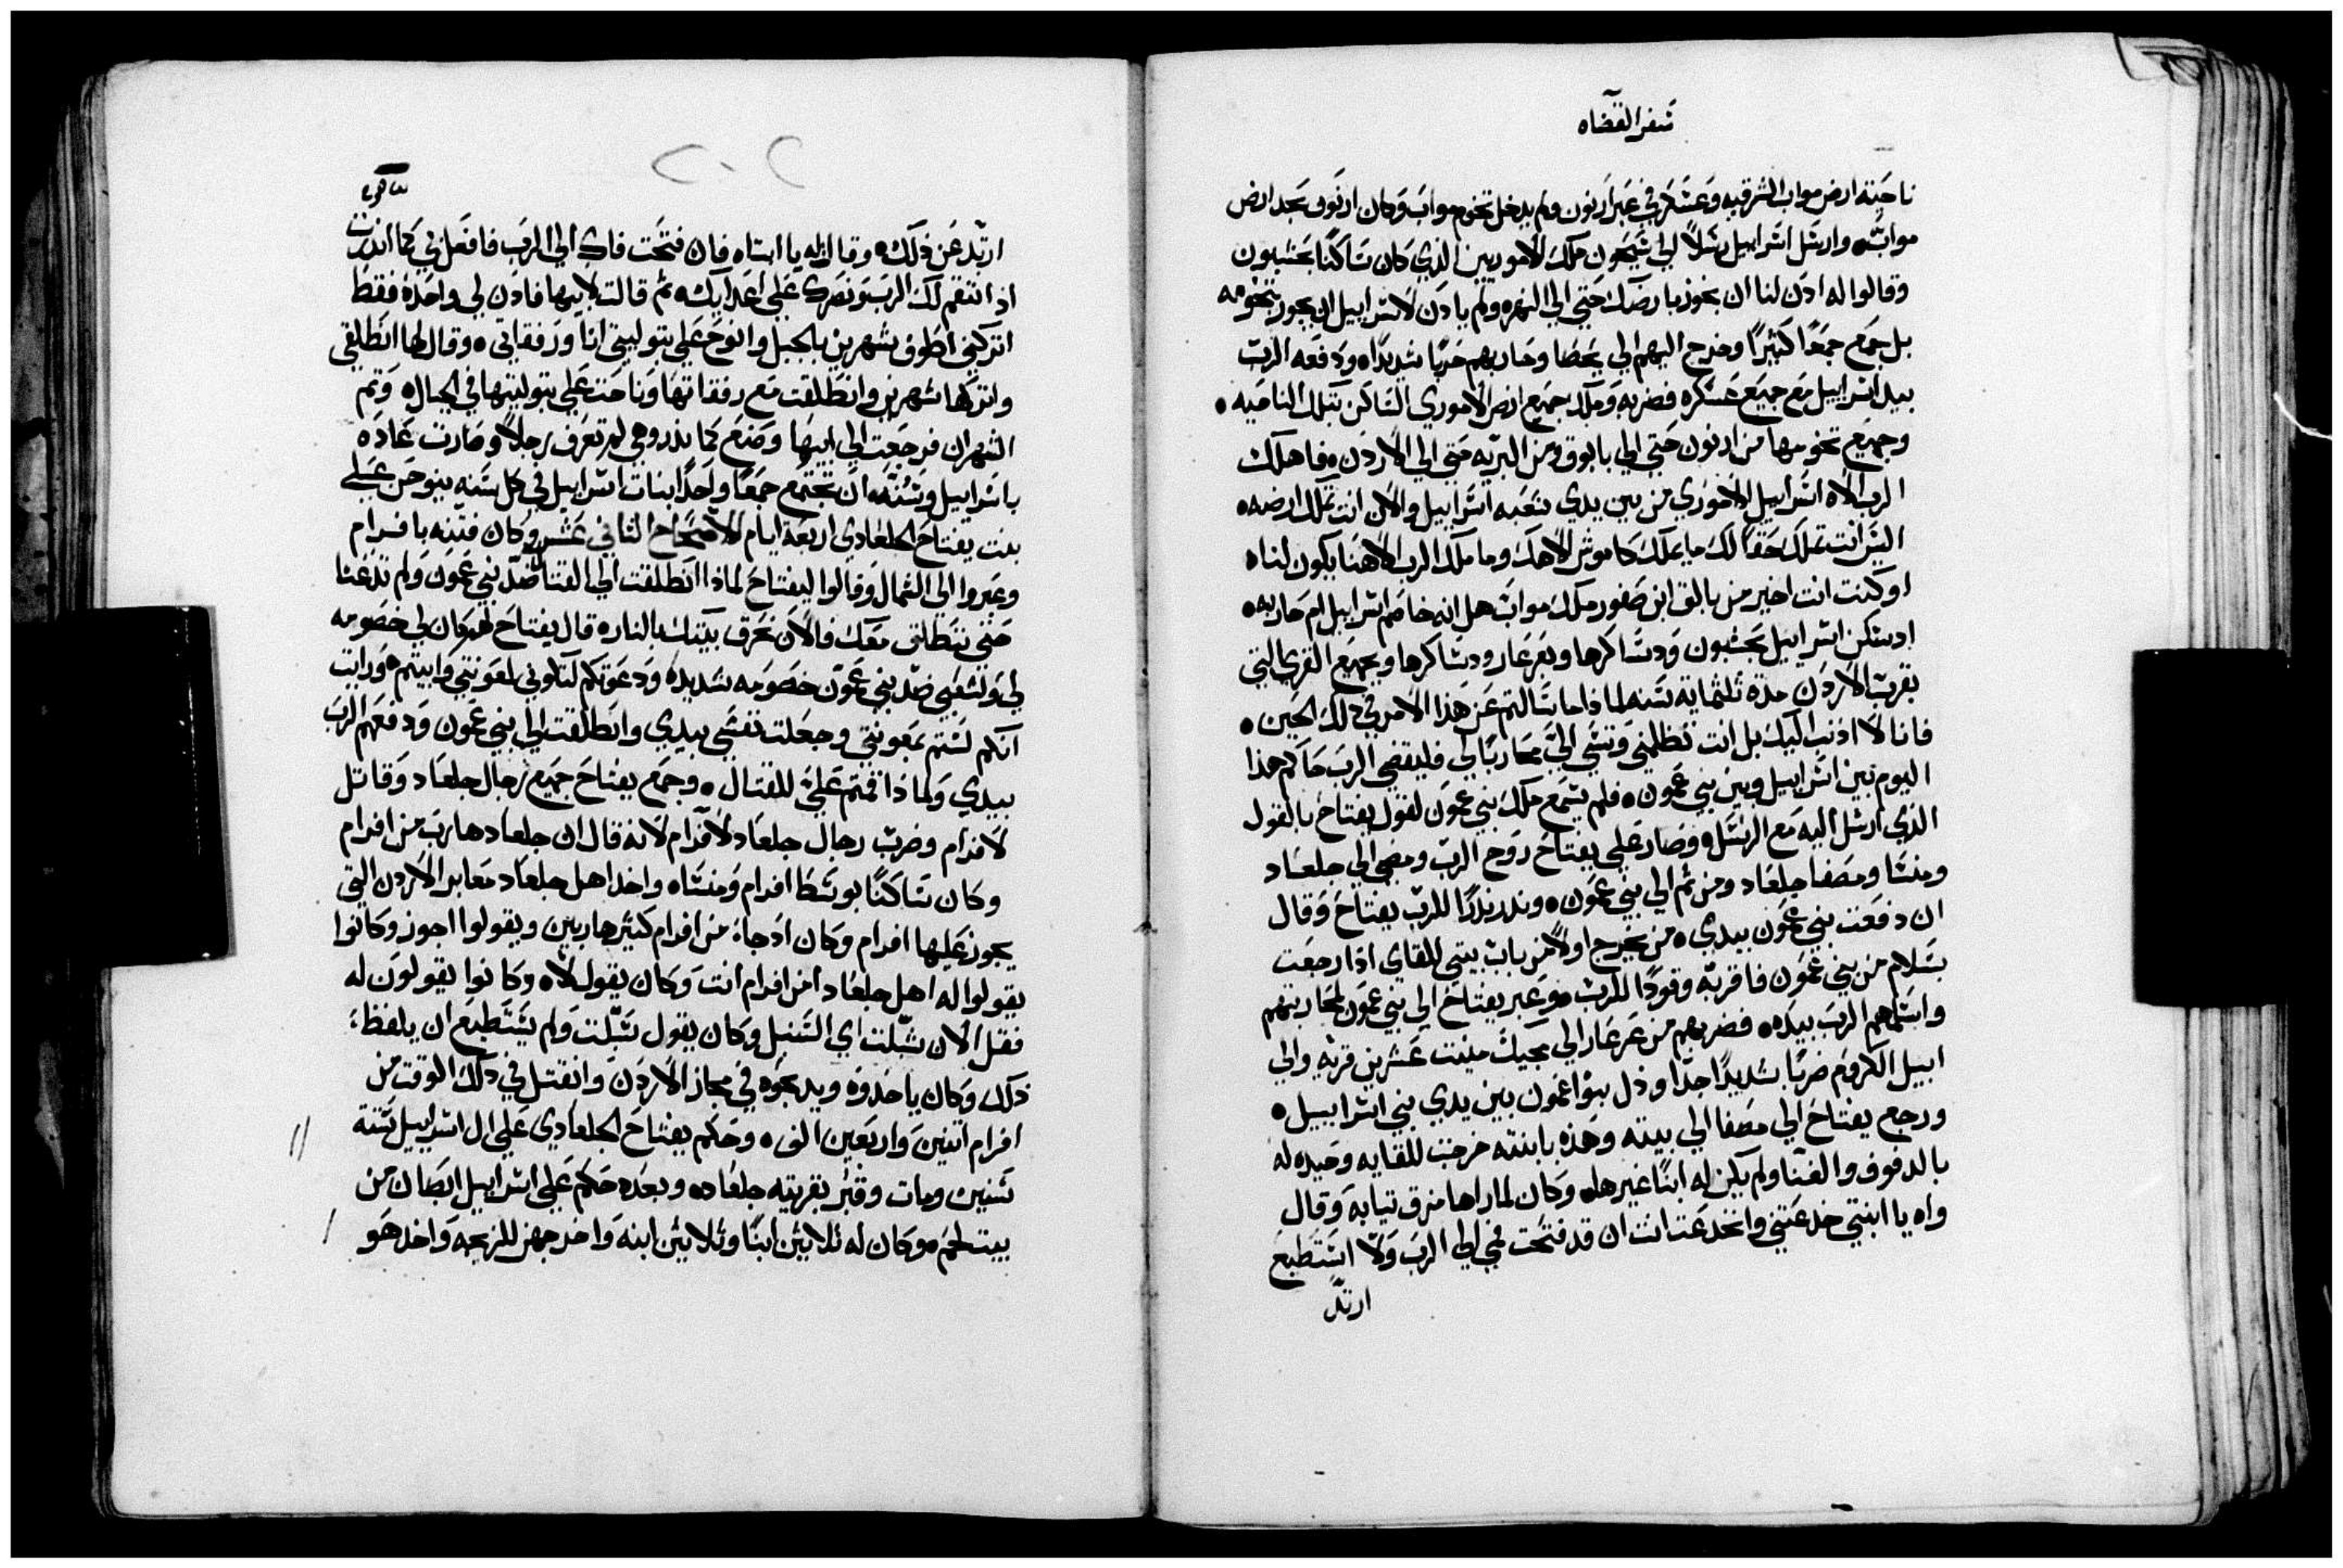 سفر القضاه
ناحية ارض مواب الشرقيه وعسكر في عبر ارنون ولم يدخل تخوم مواب وكان ارنون بحد ارض
مواب ه وارسل اسراييل رسلاً الي سيحون ملك الاموريين الذي كان ساكنًا بحشبون
وقالوا له ادن لنا ان نجوز بارضك حتي الي النهر ه ولم يادن لاسراييل ان يجوز بتخومه
بل جمع جمعًا كثيرًا وخرج اليهم الي يحطا وحاربهم حربًا شديدًا ه ودفعه الرب
بيد اسراييل مع جميع عسكره فضربه وملك جميع ارض الاموري الساكن بتلك الناحيه ه
وجميع تخومها من ارنون حتي الي يابوق ومن البريه حتي الي الاردن ه فاهلك
الرب الاه اسراييل الاموري من بين يدي شعبه اسراييل والان انت تملك ارضه ه
اليس انت تملك حقًا لك ما يملك كاموش الاهك وما ملك الرب الاهنا يكون لنا ه
او كنت انت اخير من بالق ابن صفور ملك مواب هل انه خاصم اسراييل ام حاربه ه
اد سكن اسراييل بحشبون ودساكرها وبعرعار ودساكرها وبجميع القري التي
بقرب الاردن مدة ثلثماية سنه لماذا ما سالتم عن هذا الامر في دلك الحين ه
فانا لا ادنب اليك بل انت تظلمني وتنشي الي محاربًا لي فليقضي الرب حاكم هذا
اليوم بين اسراييل وبين بني عمون ه فلم يسمع ملك بني عمون لقول يفتاح بالقول
الذي ارسل اليه مع الرسل ه وصار علي يفتاح روح الرب ومضي الي جلعاد
ومنسا ومصفا جلعاد ومن ثم الي بني عمون ه وندر ندرًا للرب يفتاح وقال
ان دفعت بني عمون بيدي ه من يخرج اولاً من باب بيتي للقاي ادا رجعت
بسلام من بني عمون فاقربه وقودًا للرب ه وعبر يفتاح الي بني عمون لمحاربتهم
واسلمهم الرب بيده ه فضربهم من عرعار الي مجيك منيت عشرين قريه والي
ابيل الكروم ضربًا شديدًا جدًا ودل بنوا عمون بين يدي بني اسراييل ه
ورجع يفتاح الي مصفا الي بيته وهذه بابنته خرجت للقايه وحيده له
بالدفوف والغنا ولم يكن له ابنًا غيرها ه وكان لما راها مزق تيابه وقال
واه يا ابنتي خدعتني وانخدعت انت ان قد فتحت فمي الي الرب ولا استطيع
ارتد
ارتد عن ذلك ه وقالت له يا ابتاه فان فتحت فاك الي الرب فافعل بي كما اندرت
اد انتقم لك الرب ونصرك علي اعدايك ه ثم قالت لابيها فادن لي واحدة فقط
اتركني اطوف شهرين بالجبل وانوح علي بتوليتي انا ورفقاتي ه وقال لها انطلقي
واتركها شهرين وانطلقت مع رفقاتها وناحت علي بتوليتها في الجبال ه وتم
الشهران فرجعت الي ابيها وصنع كما ندر وهي لم تعرف رجلاً وصارت عاده
باسراييل وسنه ان تجتمع جمعًا واحدًا بنات اسراييل في كل سنه ينوحن علي
بنت يفتاح الجلعادي اربعة ايام الاصحاح الثاني عشر وكان فتنه بافرام
وعبروا الي الشمال وقالوا ليفتاح لماذا انطلقت الي القتال ضد بني عمون ولم تدعنا
حتي ننطلق معك فالان نحرق بيتك بالنار ه قال يفتاح لهم كان لي خصومه
لي ولشعبي ضد بني عمون خصومه شديده ودعوتكم لتكوني لمعونتي وابيتم ه ورايت
انكم لستم بمعونتي وجعلت نفسي بيدي وانطلقت الي بني عمون ودفعهم الرب
بيدي ولماذا قمتم علي للقتال ه وجمع يفتاح جميع رجال جلعاد وقاتل
لافرام وضرب رجال جلعاد لافرام لانه قال ان جلعاد هارب من افرام
وكان ساكنًا بوسط افرام ومنساه واخد اهل جلعاد معابر الاردن التي
يجوز عليها افرام وكان ادجاء من افرام كثير هاربين ويقولوا اجوز وكانوا
يقولوا له اهل جلعاد امن افرام انت وكان يقول لا ه وكانوا يقولون له
فقل الان شبلت اي السنبل وكان يقول سبلت ولم يستطيع ان يلفظ
ذلك وكان ياخدوه ويدبحوه في مجاز الاردن وانقتل في دلك الوقت من
افرام اتنين واربعين الف ه وحكم يفتاح الجلعادي علي ال اسراييل ستة
سنين ومات وقبر بقريته جلعاد ه وبعده حكم علي اسراييل ابصان من
بيت لحم ه وكان له ثلاثين ابنًا وثلاثين ابنه واخرجهن للزيجه واخد هو